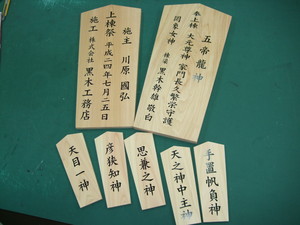 五帝龍神
奉上棟 大元尊神 家門長久繁栄守護
岡象女神 棟梁 黒木幹雄 敬白
施主 川原國弘
上棟祭 平成二四年七月二五日
施工 株式会社 黒木工務店
手置帆負神
天之神中主神
思兼之神
彦狭知神
天目一神